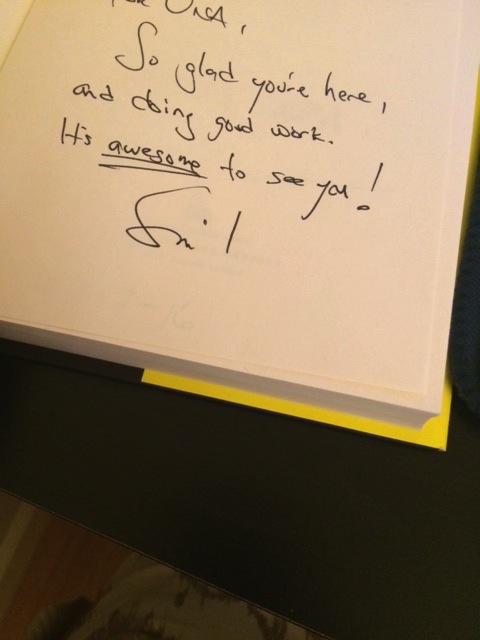 for UNA,
So glad you're here,
and doing good work.
It's awesome to see you!